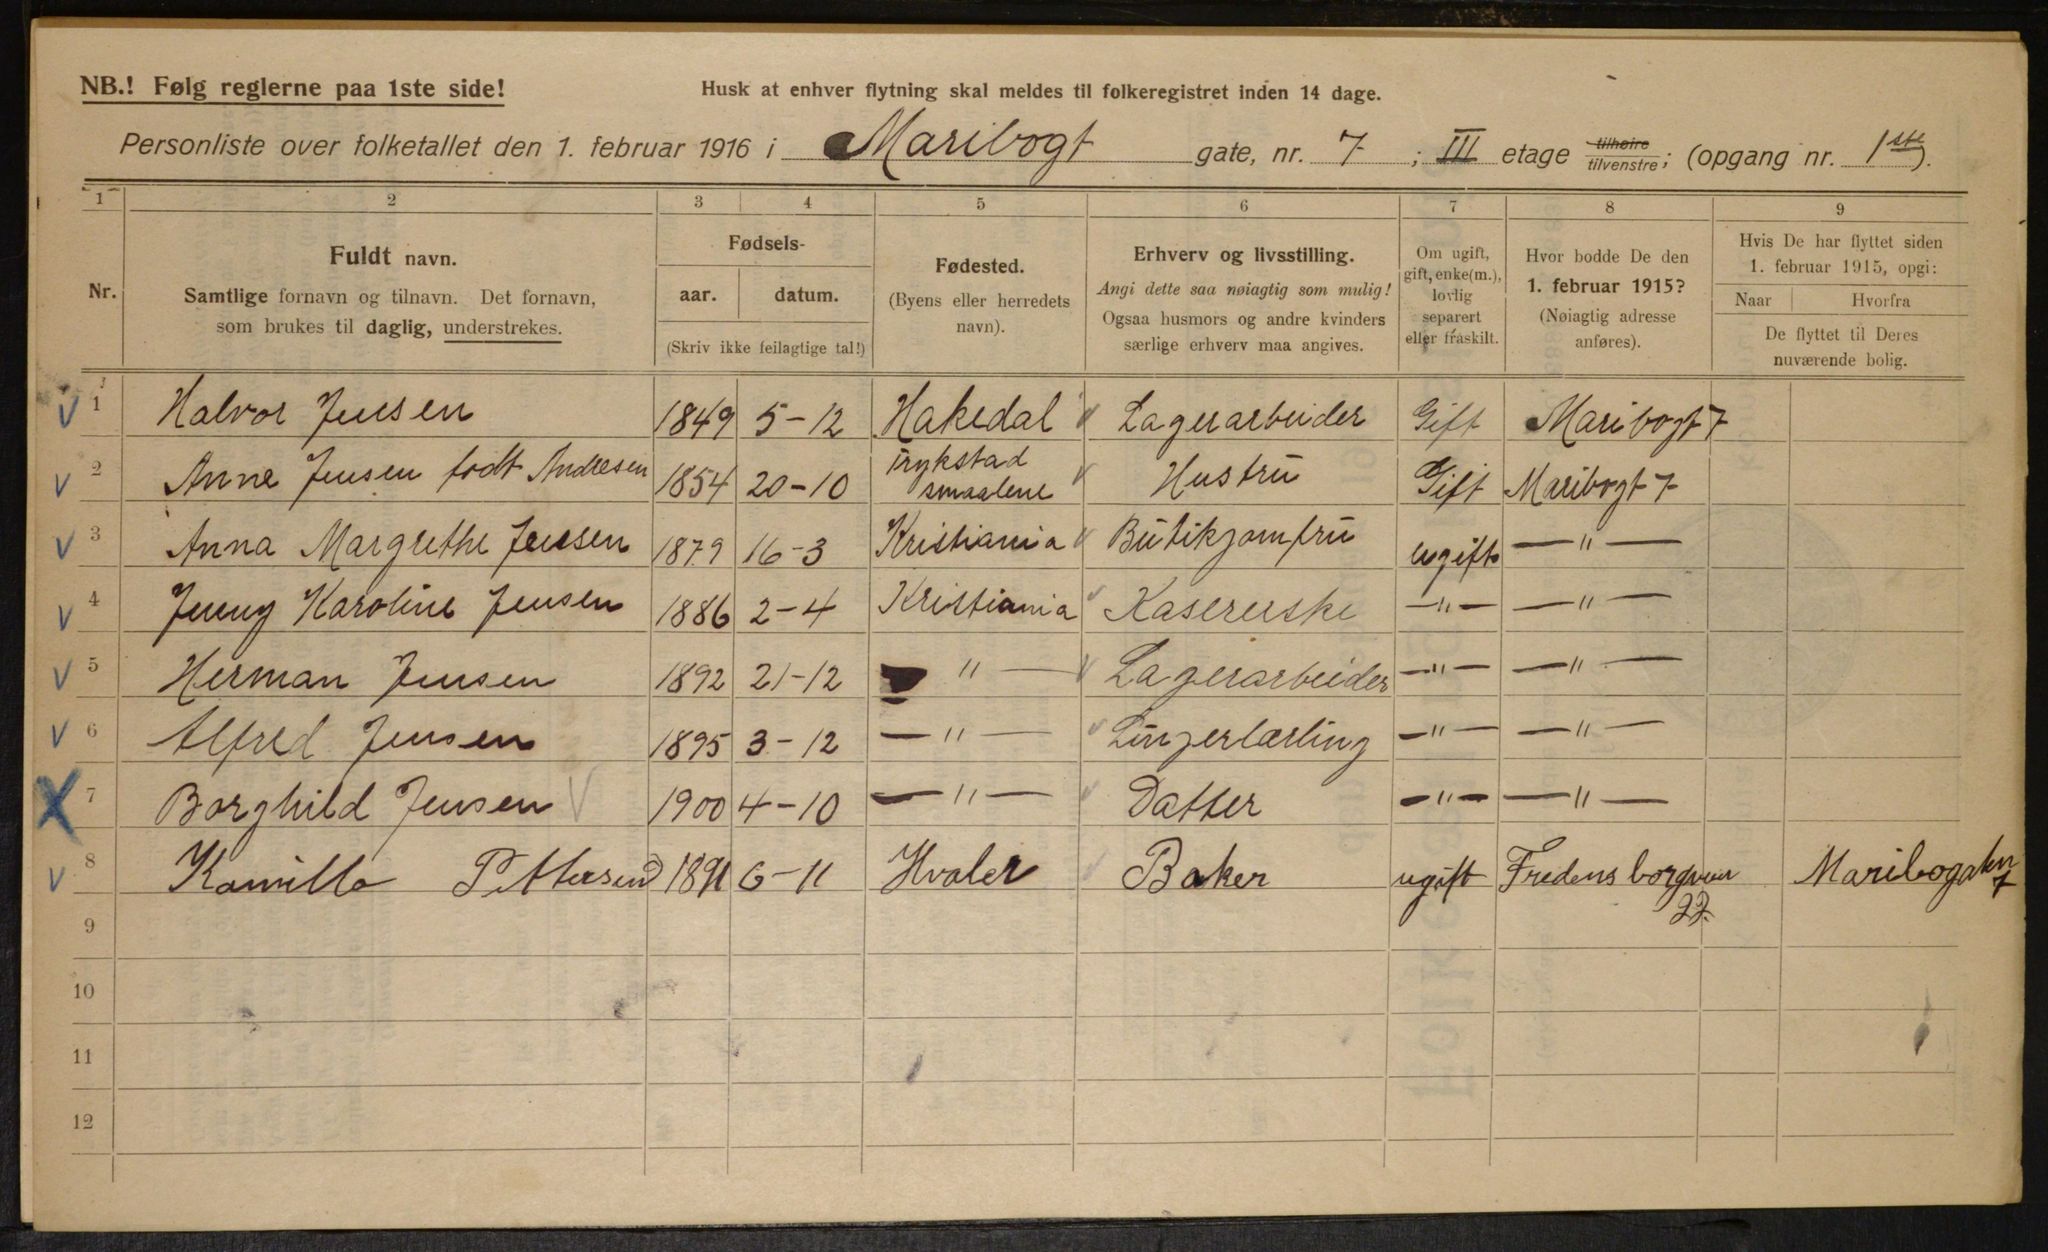 NB.! Følg reglerne paa 1ste side!
Husk at enhver flytning skal meldes til folkeregistret inden 14 dage.
Personliste over folketallet den 1. februar 1916 i Maribogt gate, nr. 7 ; III etage tilhøire tilvenstre; (opgang nr. 1ste).
1 2 3 4 5 6 7 8 9
Nr.
Fuldt navn.
Samtlige fornavn og tilnavn. Det fornavn,
som brukes til daglig, understrekes.
Fødsels-
aar. datum.
(Skriv ikke feilagtige tal!)
Fødested.
(Byens eller herredets
navn).
Erhverv og livsstilling.
Angi dette saa nøiagtig som mulig!
Ogsaa husmors og andre kvinders
særlige erhverv maa angives.
Om ugift,
gift, enke(m.),
lovlig
separert
eller fraskilt.
Hvor bodde De den
1. februar 1915?
(Nøiagtig adresse
anføres).
Hvis De har flyttet siden
1. februar 1915, opgi:
Naar Hvorfra
De flyttet til Deres
nuværende bolig.
1 Halvor Jensen 1849 5-12 Hakedal Lagerarbeider Gift Maribogt 7
2 Anne Jensen født Andresen 1854 20-10 Trykstad smaalene Hustru Gift Maribogt 7
3 Anna Margrethe Jensen 1879 16-3 Kristiania Butikjomfru ugift —"—
4 Jenny Karoline Jensen 1886 2-4 Kristiania Kasererske —"— —"—
5 Herman Jensen 1892 21-12 " — Lagerarbeider —"— —"—
6 Alfred Jensen 1895 3-12 —"— —"— —"—
7 Borghild Jensen 1900 4-10 —"— Datter —"— —"—
8 Kamillo Pettersen 1891 6-11 Hvaler Baker ugift Fredensborgveien 22. Maribogaten 7
9
10
11
12